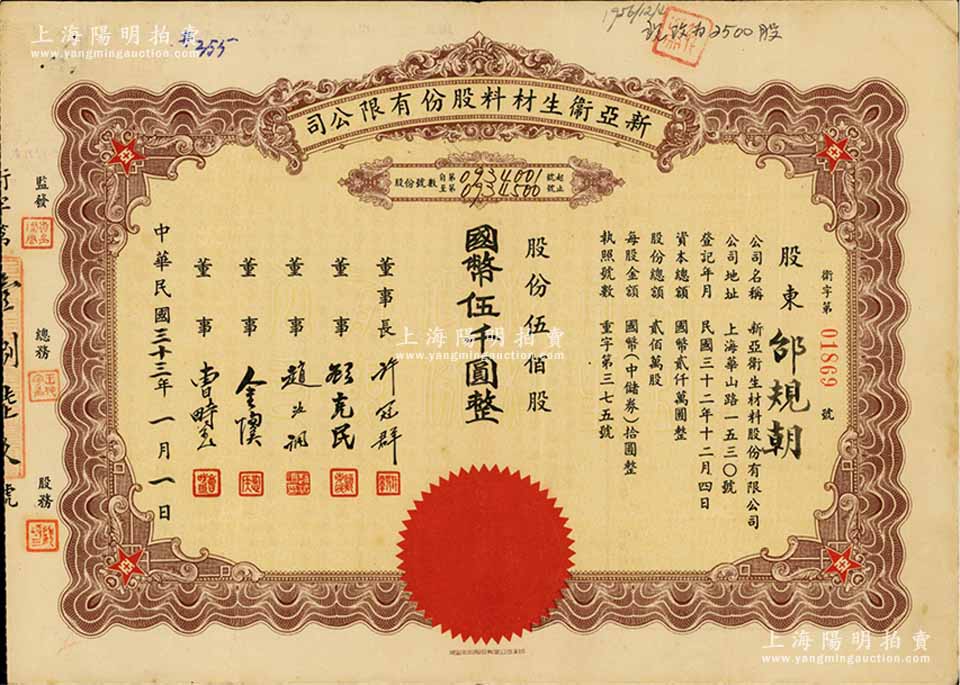 上海陽明拍賣
www.yangmingauction.com
355
1956/12/4
改为2500股
新亞衛生材料股份有限公司
股份號數 自第0934001號起
至第0934500號止
衛字第 01869 號
股東 邰規朝
公司名稱 新亞衛生材料股份有限公司
公司地址 上海華山路一五三〇號
登記年月 民國三十二年十二月四日
資本總額 國幣貳仟萬圓整
股份總額 貳佰萬股
每股金額 國幣(中儲券)拾圓整
執照號數 重字第三七五號
股份伍佰股
國幣伍仟圓整
董事長 許冠群
董事 顧克民
董事 趙汝調
董事
董事
中華民國三十三年一月一日
監發
總務
股務
上海陽明拍賣
www.yangmingauction.com
上海陽明拍賣
www.yangmingauction.com